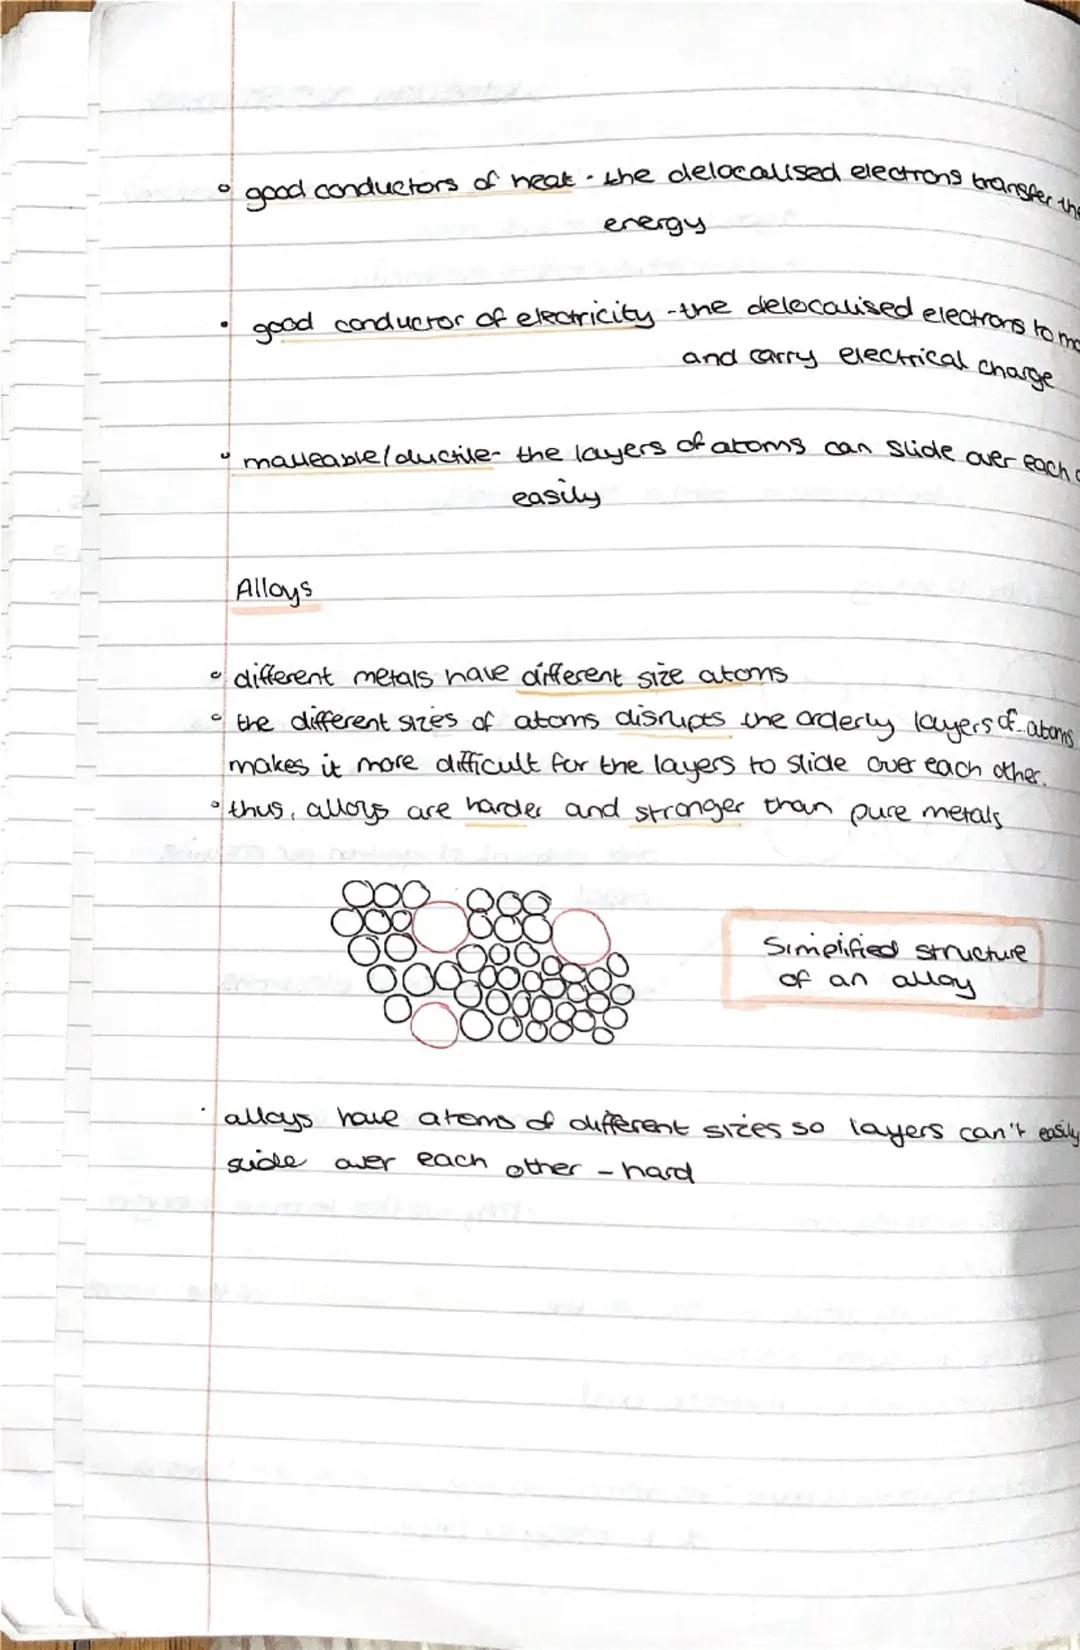 ◦ good conductors of heat - the delocalised electrons transfer the
energy
• good conductor of electricity - the delocalised electrons to mo
and carry electrical charge
◦ malleable/ductile- the layers of atoms can slide over each o
easily
Alloys
◦ different metals have different size atoms
◦ the different sizes of atoms disrupts the orderly layers of atoms
makes it more difficult for the layers to slide over each other.
◦ thus, alloys are harder and stronger than pure metals
Simplified structure
of an alloy
· alloys have atoms of different sizes so layers can't easily
slide over each other - hard